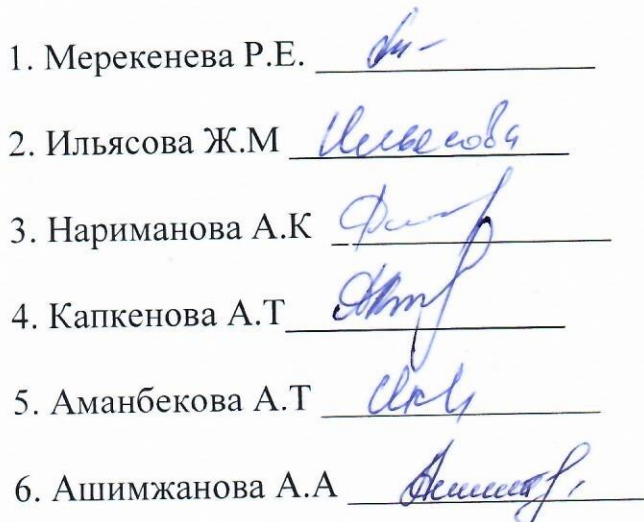 1. Мерекенева Р.Е.
2. Ильясова Ж.М Ильясова
3. Нариманова А.К
4. Капкенова А.Т
5. Аманбекова А.Т
6. Ашимжанова А.А